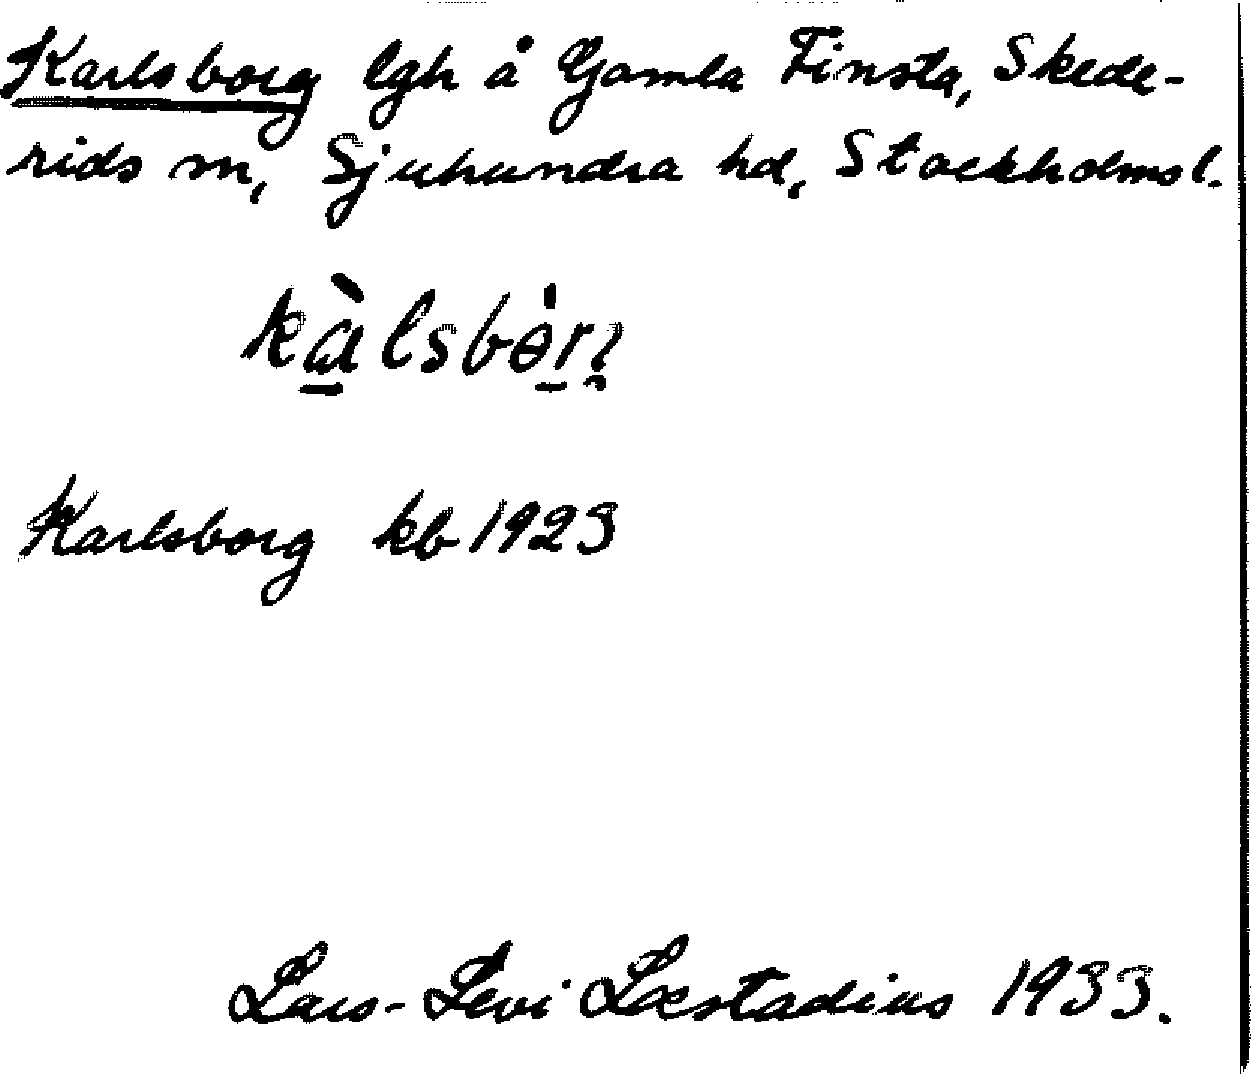 Karlsborg lgh å Gamla Finsta, Skede-
rids sn, Sjuhundra hd, Stockholms l.
Karlsborg kb 1923
Lars-Levi Læstadius 1933.